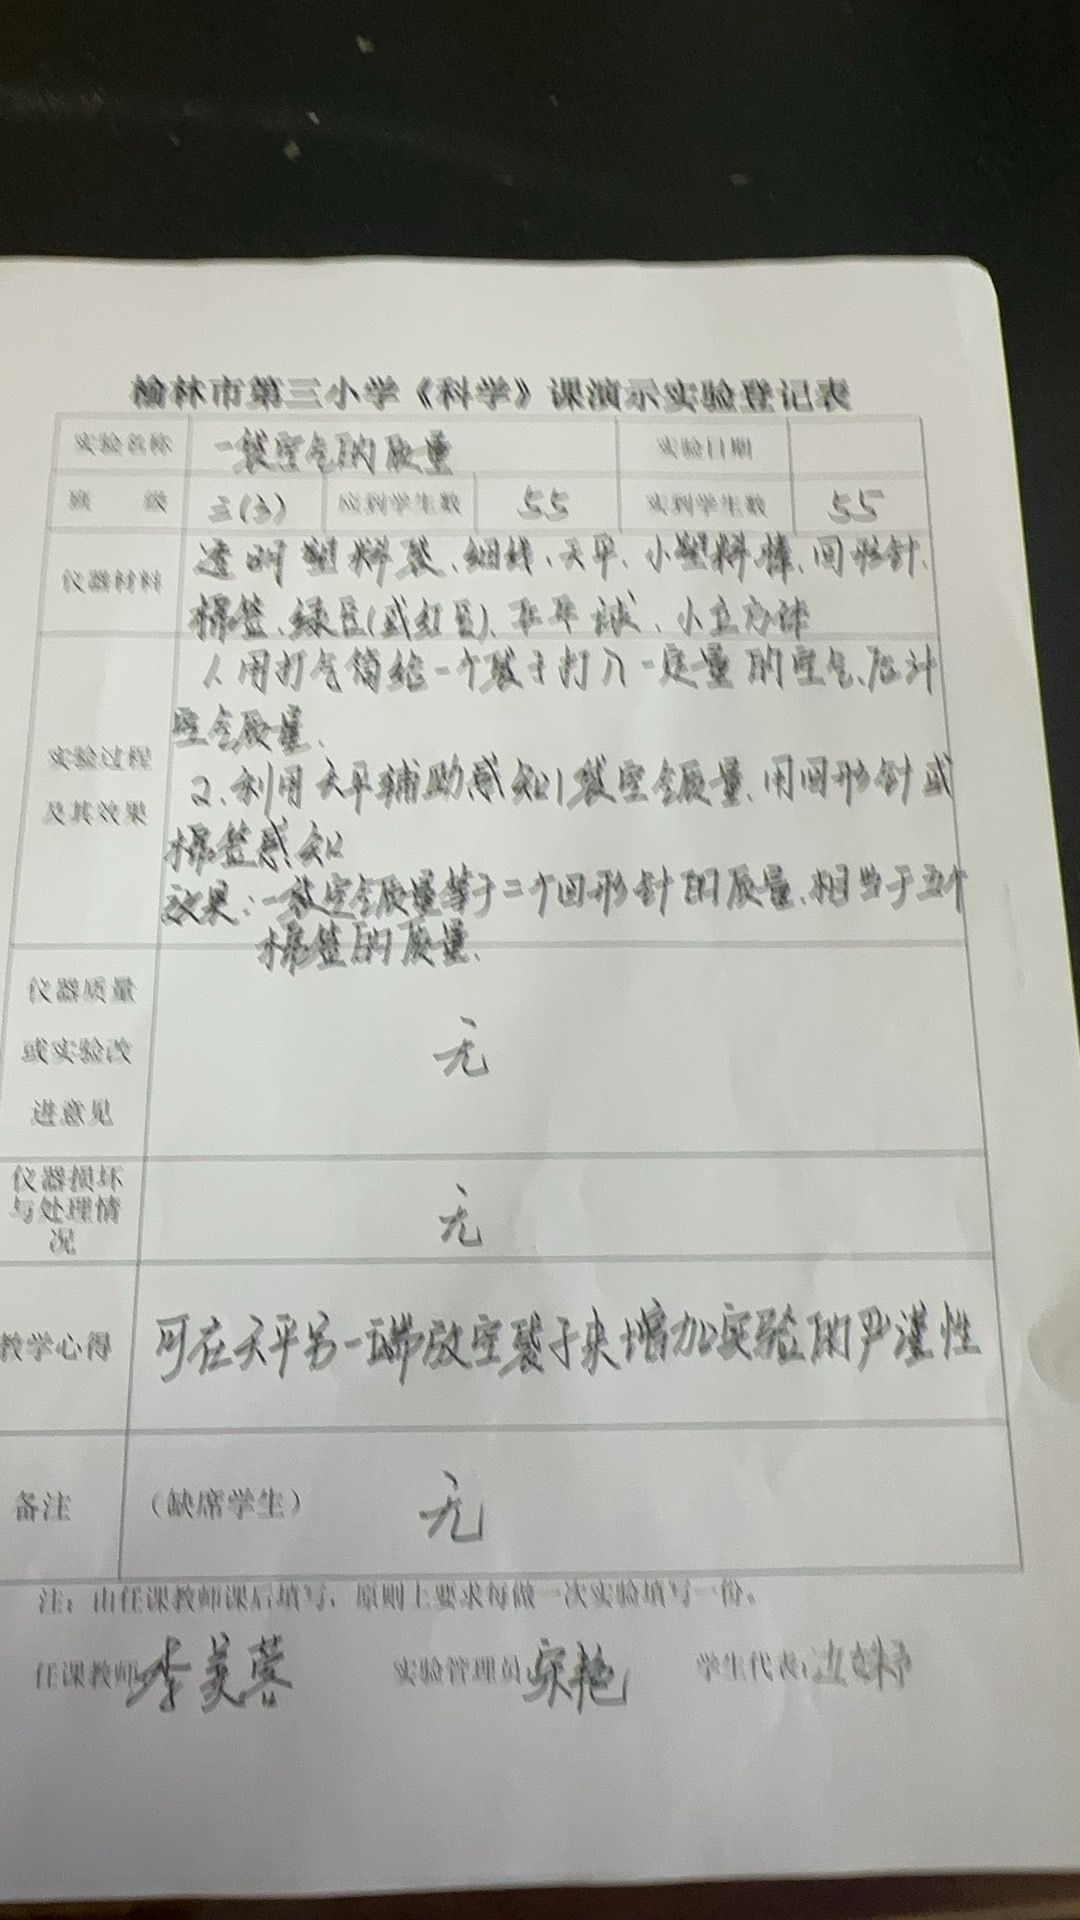 榆林市第三小学《科学》课演示实验登记表
实验名称 一袋空气的质量 实验日期
班 级 三(3) 应到学生数 55 实到学生数 55
仪器材料
透明塑料袋、细线、天平、小塑料棒、回形针、
棉签、绿豆(或红豆)、乒乓球、小立方体
实验过程
及其效果
1.用打气筒给一个袋子打入一定量的空气,估计
空气质量.
2.利用天平辅助感知1袋空气质量.用回形针或
棉签感知
效果:一袋空气质量等于二个回形针的质量.相当于五个
棉签的质量.
仪器质量
或实验改
进意见
无
仪器损坏
与处理情
况
无
教学心得 可在天平另一端放空袋子来增加实验的严谨性
备注 (缺席学生) 无
注:由任课教师课后填写,原则上要求每做一次实验填写一份。
任课教师 李美蓉 实验管理员 宋艳 学生代表: